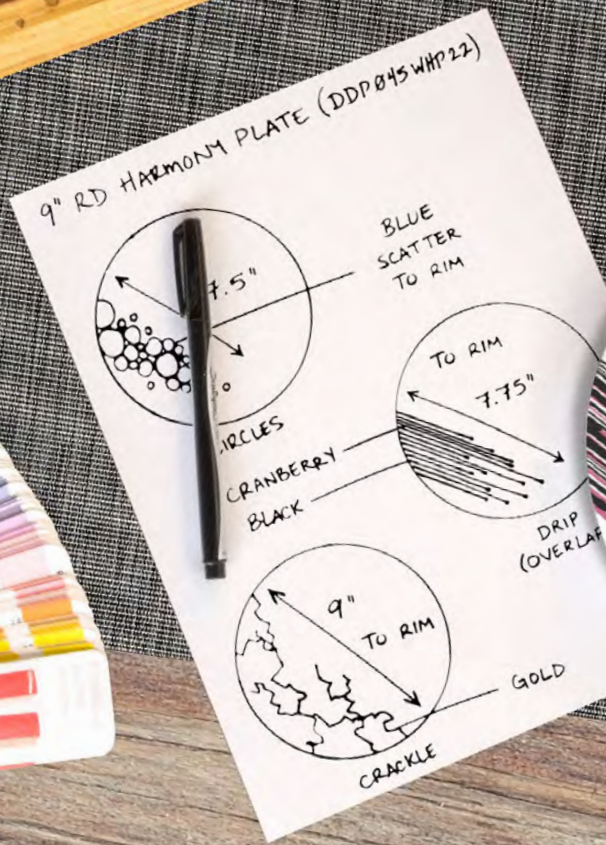 9" RD HARMONY PLATE (DDP045WHP22)
7.5"
BLUE
SCATTER
TO RIM
IRCLES
TO RIM
7.75"
CRANBERRY
BLACK
DRIP
(OVERLAP
9"
TO RIM
GOLD
CRACKLE